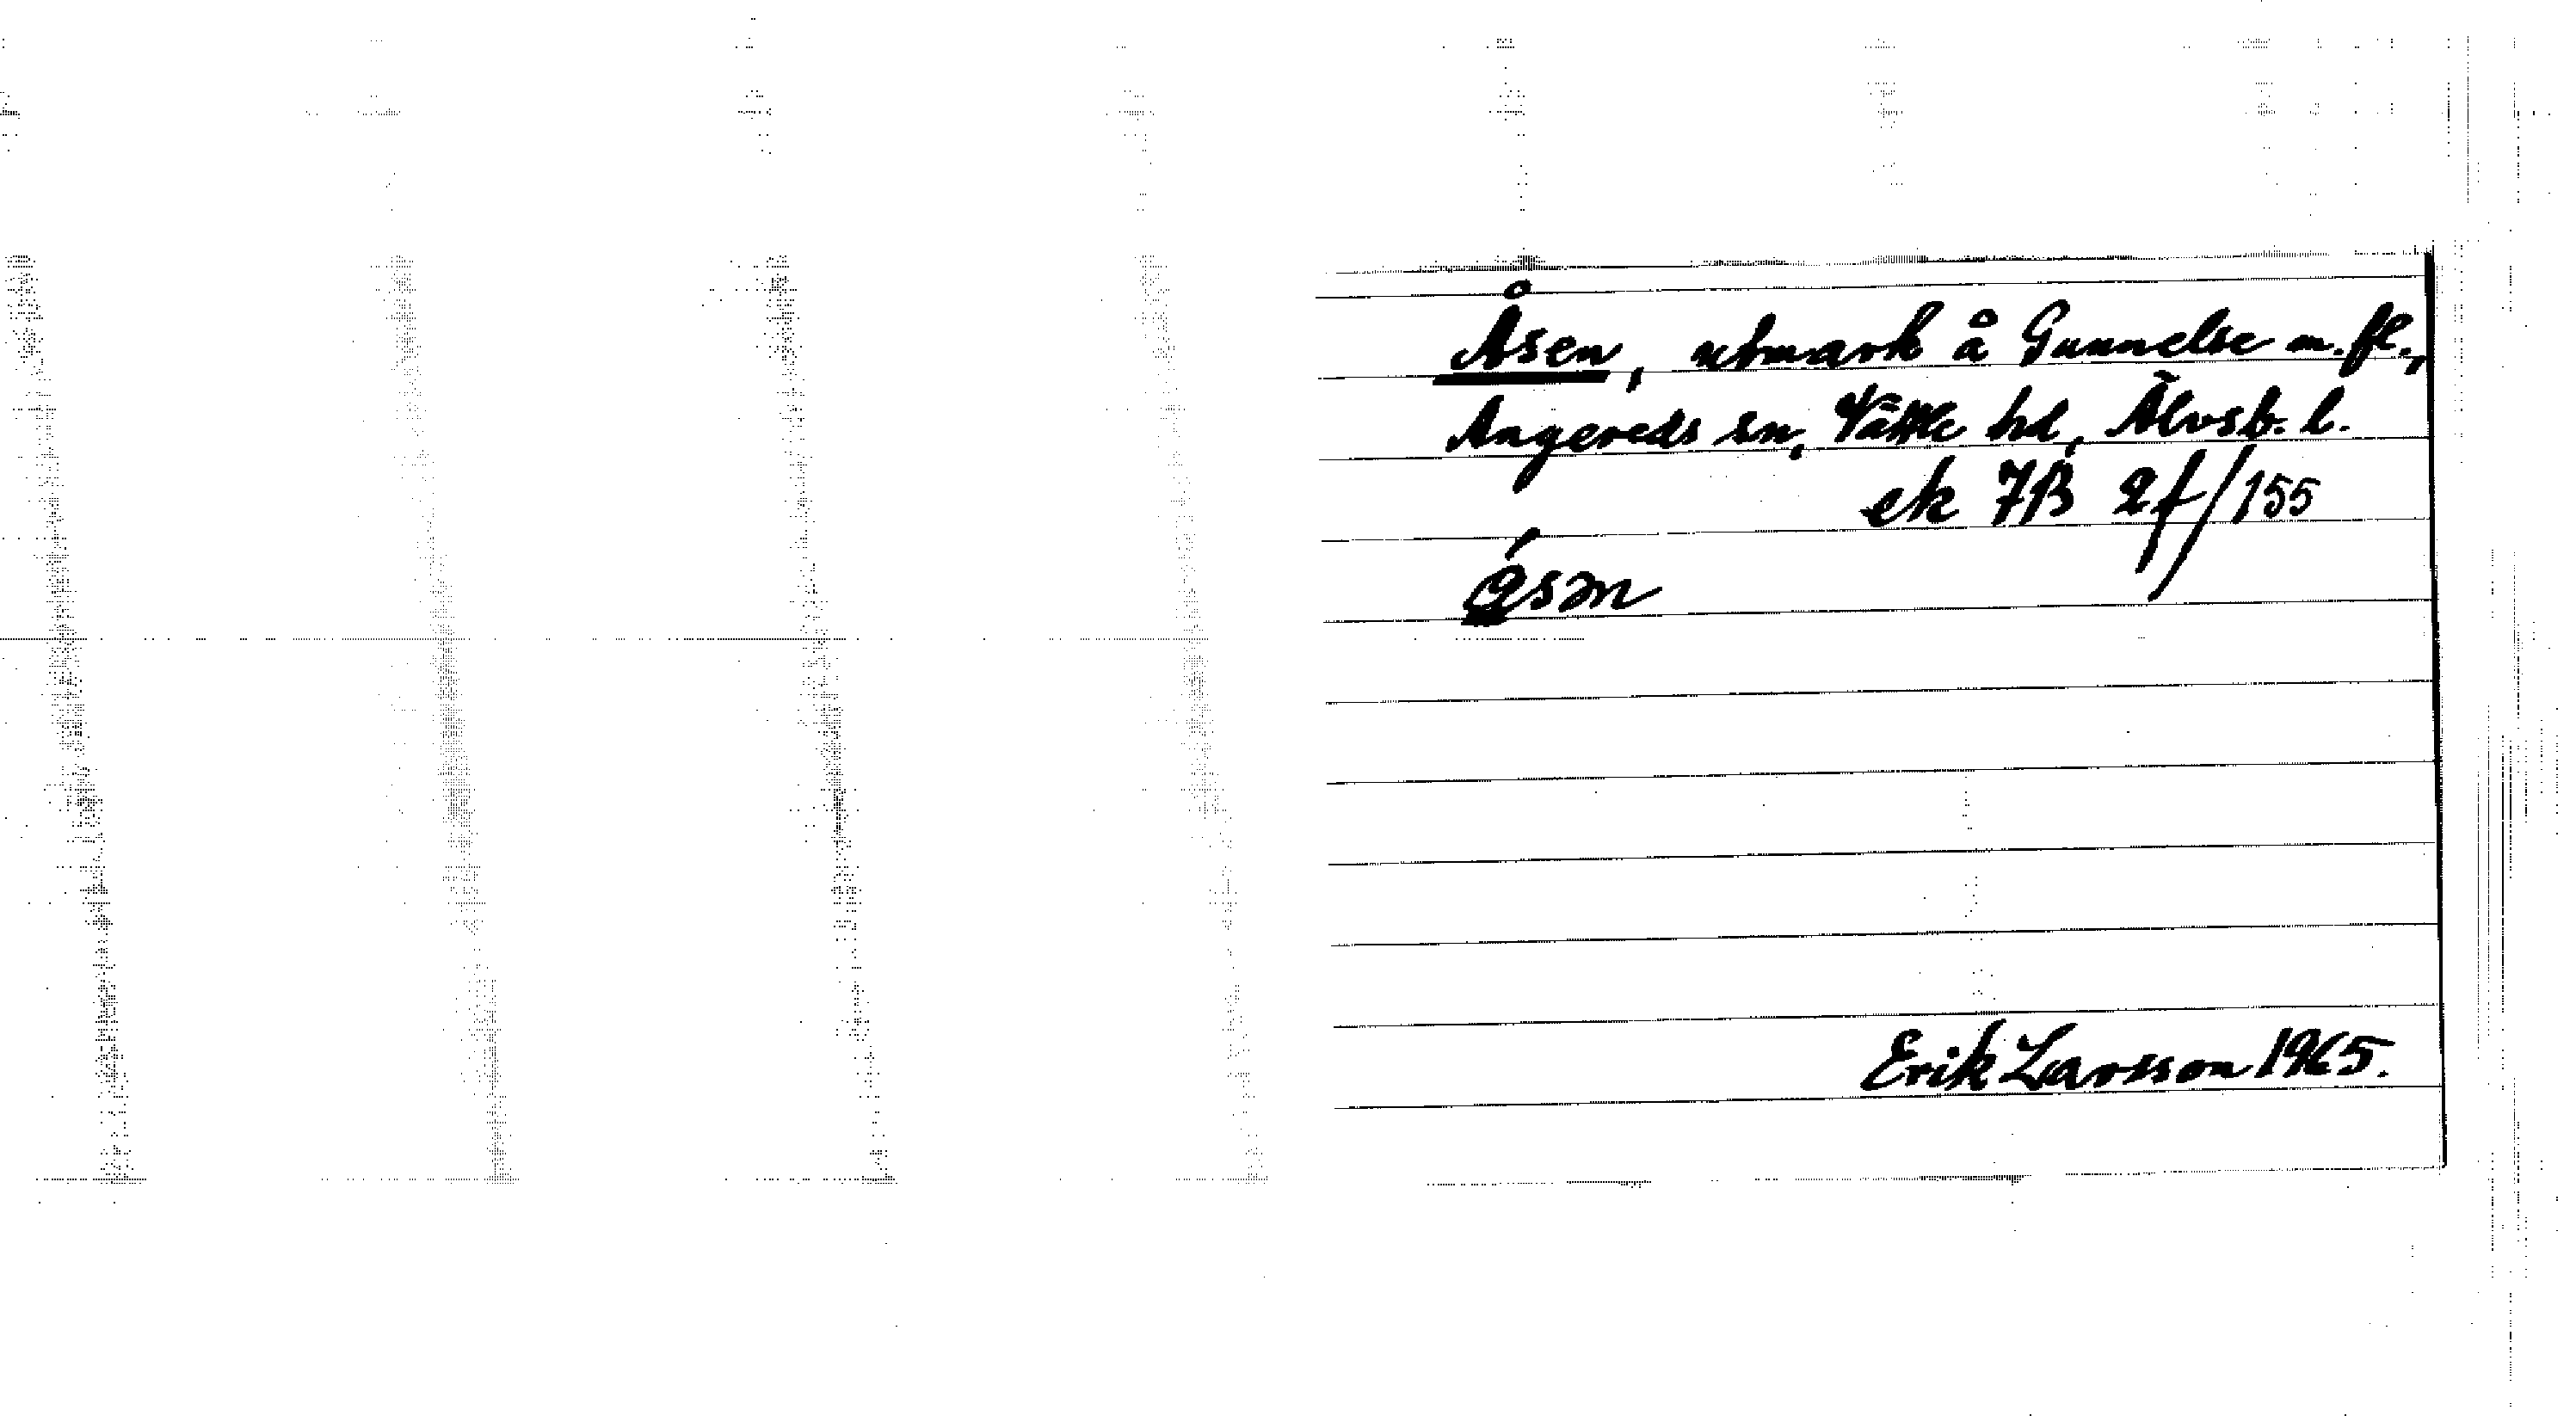 Åsen, utmark å Gunnelse m.fl.,
Angereds sn, Vättle hd, Älvsb. l.
ek 7B 2f/155
Erik Larsson 1965.